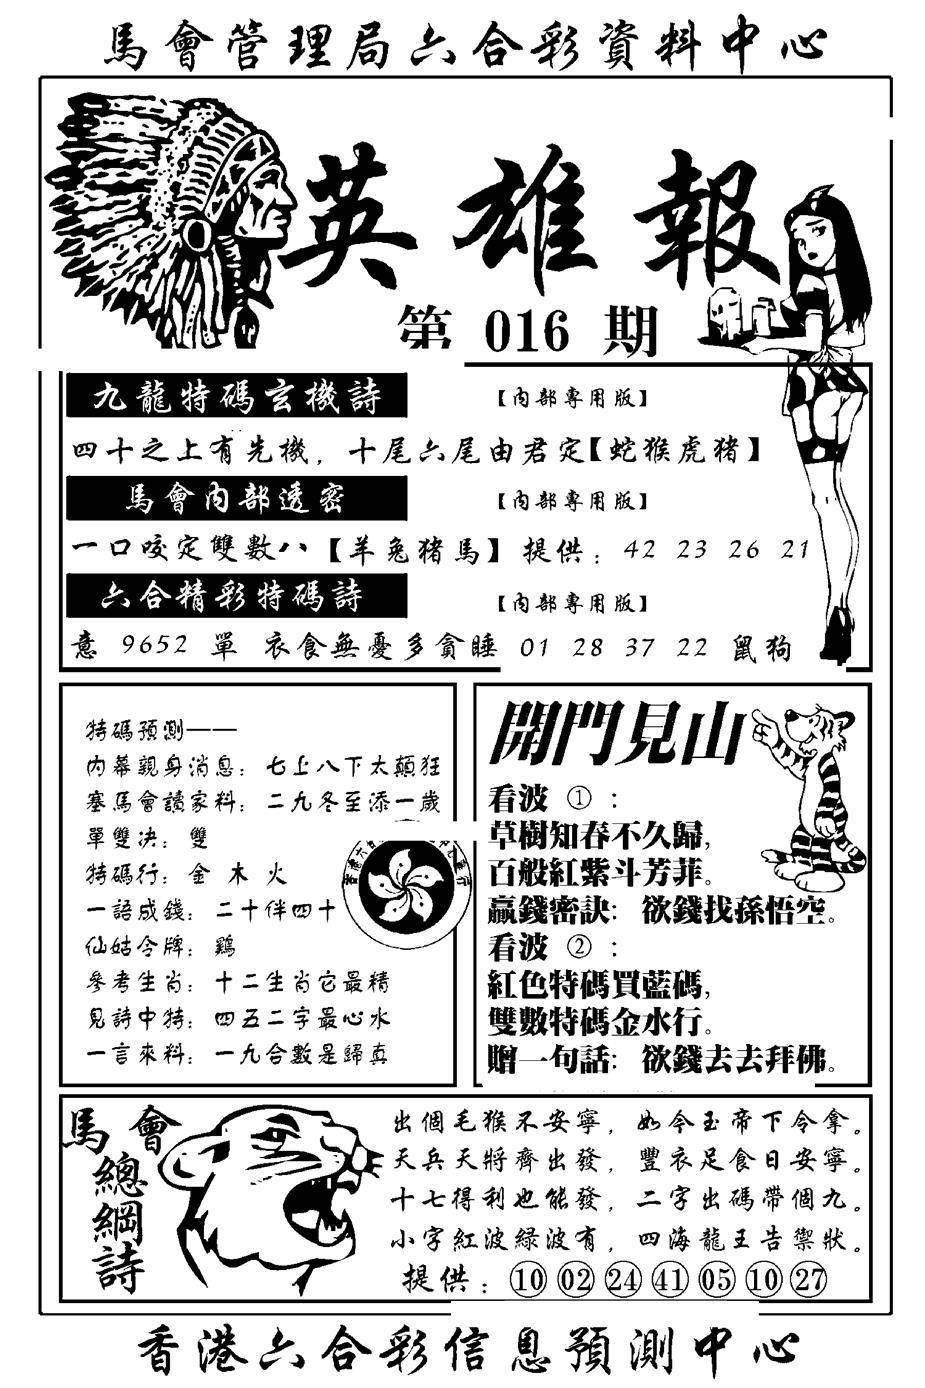 馬會管理局六合彩資料中心
英雄報
第 016 期
九龍特碼玄機詩 【內部專用版】
四十之上有先機，十尾六尾由君定【蛇猴虎豬】
馬會內部透密 【內部專用版】
一口咬定雙數八【羊兔豬馬】提供：42 23 26 21
六合精彩特碼詩 【內部專用版】
意 9652 單 衣食無憂多貪睡 01 28 37 22 鼠狗
特碼預測——
內幕親身消息：七上八下太顛狂
塞馬會讀家料：二九冬至添一歲
單雙决：雙
特碼行：金 木 火
一語成錢：二十伴四十
仙姑令牌：鷄
參考生肖：十二生肖它最精
見詩中特：四五二字最心水
一言來料：一九合數是歸真
開門見山
看波 ①：
草樹知春不久歸，
百般紅紫斗芳菲。
贏錢密訣：欲錢找孫悟空。
看波 ②：
紅色特碼買藍碼，
雙數特碼金水行。
贈一句話：欲錢去去拜佛。
馬會
總綱詩
出個毛猴不安寧，如令玉帝下令拿。
天兵天將齊出發，豐衣足食日安寧。
十七得利也能發，二字出碼帶個九。
小字紅波綠波有，四海龍王告禦狀。
提供：⑩ 02 24 41 05 ⑩ 27
香港六合彩信息預測中心